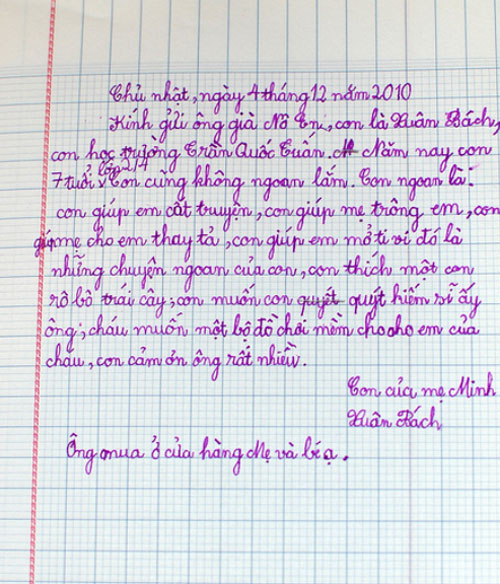 Chủ nhật, ngày 4 tháng 12 năm 2010
Kính gửi ông già Nô En, con là Xuân Bách,
con học trường Trần Quốc Tuấn. Năm nay con
7 tuổi lớp 2/7 Con cũng không ngoan lắm. Con ngoan là:
con giúp em cất truyện, con giúp mẹ trông em, con
giúp mẹ cho em thay tả, con giúp em mở ti vi đó là
những chuyện ngoan của con, con thích một con
rô bô trái cây, con muốn con quyết quýt hiệm sĩ ấy
ông; cháu muốn một bộ đồ chơi mềm cho cho em của
cháu, con cảm ơn ông rất nhiều.
Con của mẹ Minh
Xuân Bách
Ông mua ở cửa hàng Mẹ và bé ạ.